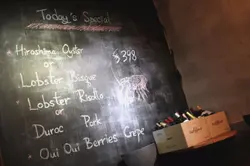 Today's Special
Hiroshima Oyster
or
Lobster Bisque
$398
Lobster Risotto
or
Duroc Pork
Oui Oui Berries Crepe